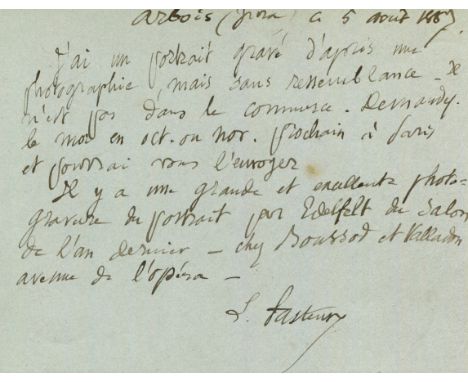 Arbois (Jura) ce 5 août 1887
J'ai un portrait gravé d'après une
photographie, mais sans ressemblance. Il
n'est pas dans le commerce. Demandez
le moi en oct. ou nov. prochain à Paris
et pourrai vous l'envoyer
Il y a une grande et excellente photo-
gravure du portrait par Edelfelt du Salon
de l'an dernier — chez Boussod et Valladon
avenue de l'opéra —
L. Pasteur